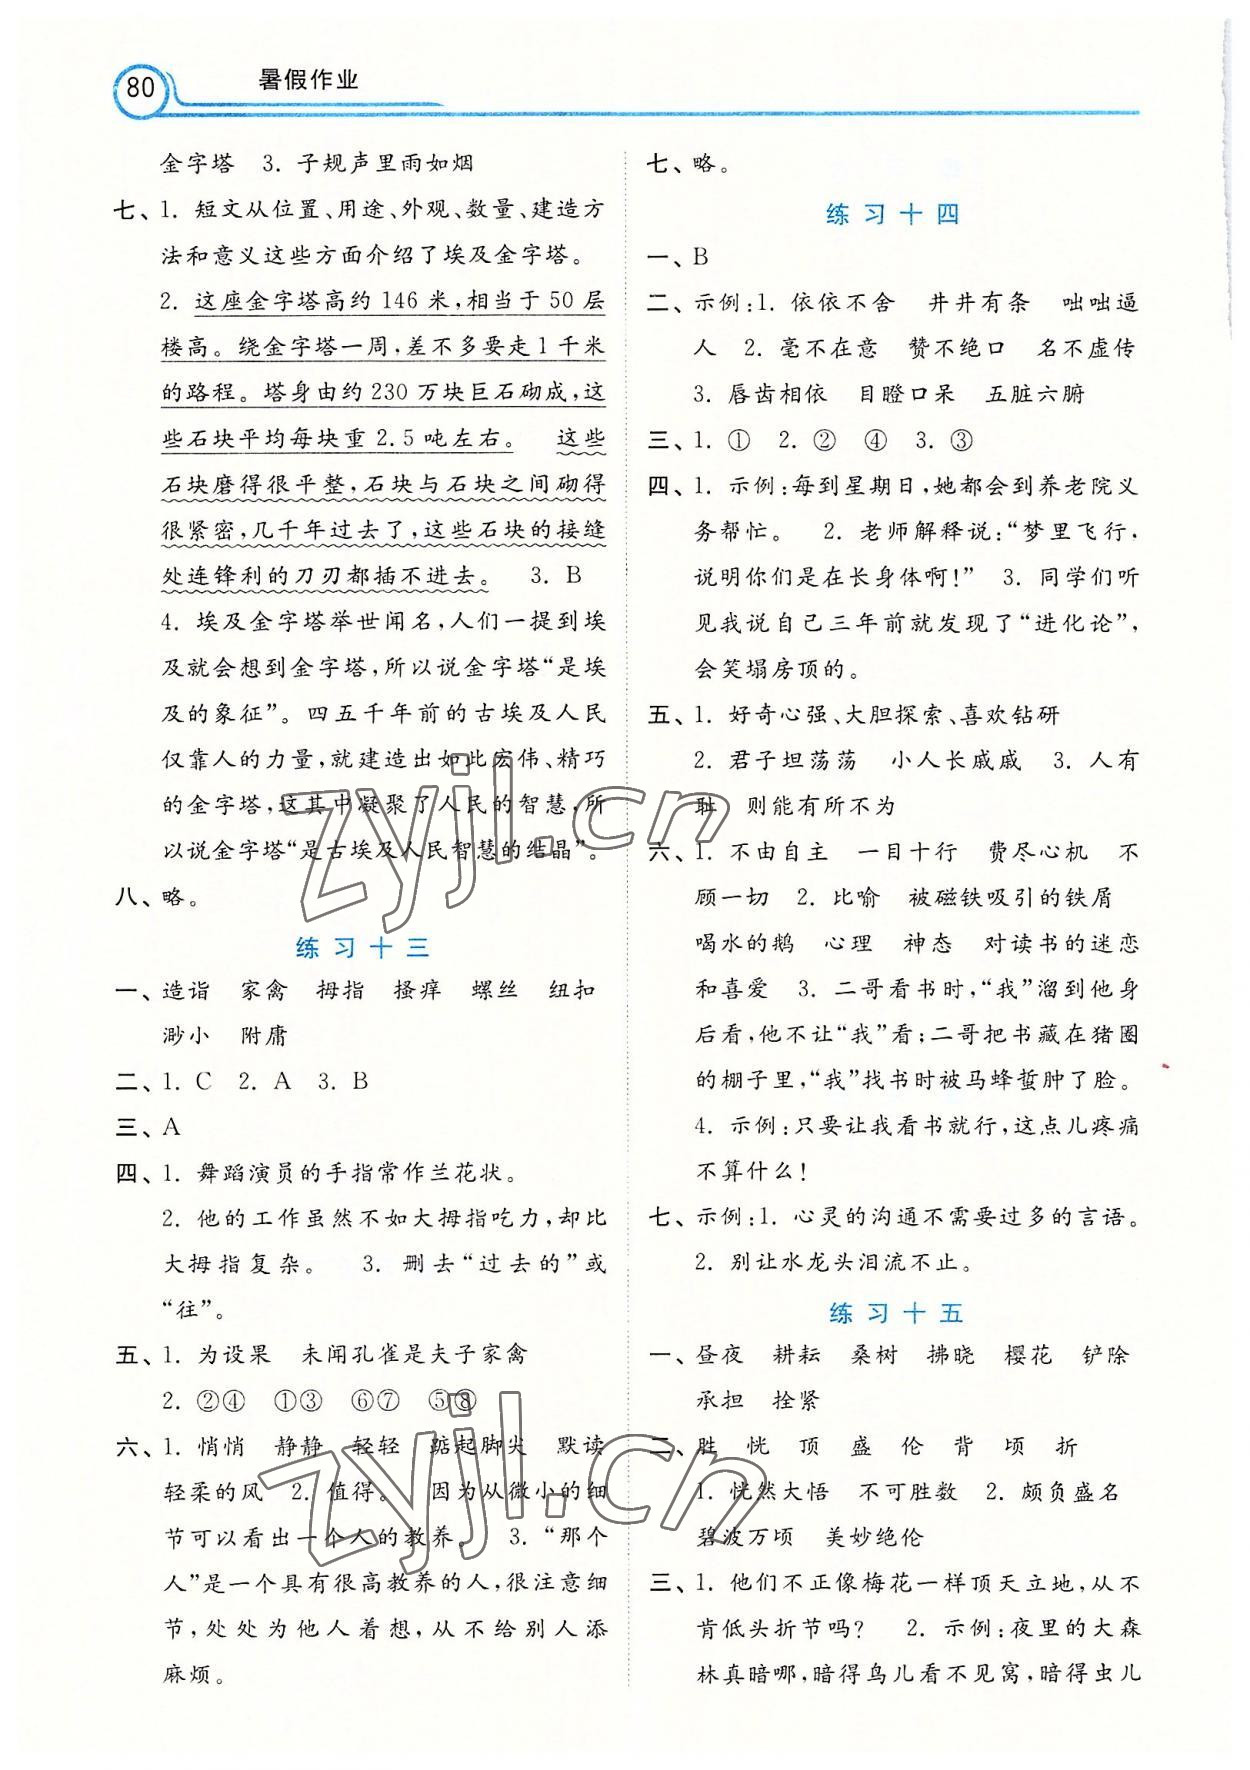 80
暑假作业
金字塔 3. 子规声里雨如烟
七、1. 短文从位置、用途、外观、数量、建造方
法和意义这些方面介绍了埃及金字塔。
2. 这座金字塔高约 146 米，相当于 50 层
楼高。绕金字塔一周，差不多要走 1 千米
的路程。塔身由约 230 万块巨石砌成，这
些石块平均每块重 2.5 吨左右。 这些
石块磨得很平整，石块与石块之间砌得
很紧密，几千年过去了，这些石块的接缝
处连锋利的刀刃都插不进去。 3. B
4. 埃及金字塔举世闻名，人们一提到埃
及就会想到金字塔，所以说金字塔“是埃
及的象征”。四五千年前的古埃及人民
仅靠人的力量，就建造出如此宏伟、精巧
的金字塔，这其中凝聚了人民的智慧，所
以说金字塔“是古埃及人民智慧的结晶”。
八、略。
练习十三
一、造诣 家禽 拇指 搔痒 螺丝 纽扣
渺小 附庸
二、1. C 2. A 3. B
三、A
四、1. 舞蹈演员的手指常作兰花状。
2. 他的工作虽然不如大拇指吃力，却比
大拇指复杂。 3. 删去“过去的”或
“往”。
五、1. 为设果 未闻孔雀是夫子家禽
2. ②④ ①③ ⑥⑦ ⑤⑧
六、1. 悄悄 静静 轻轻 踮起脚尖 默读
轻柔的风 2. 值得。 因为从微小的细
节可以看出一个人的教养。 3. “那个
人”是一个具有很高教养的人，很注意细
节，处处为他人着想，从不给别人添
麻烦。
七、略。
练习十四
一、B
二、示例：1. 依依不舍 井井有条 咄咄逼
人 2. 毫不在意 赞不绝口 名不虚传
3. 唇齿相依 目瞪口呆 五脏六腑
三、1. ① 2. ② ④ 3. ③
四、1. 示例：每到星期日，她都会到养老院义
务帮忙。 2. 老师解释说：“梦里飞行，
说明你们是在长身体啊！” 3. 同学们听
见我说自己三年前就发现了“进化论”，
会笑塌房顶的。
五、1. 好奇心强、大胆探索、喜欢钻研
2. 君子坦荡荡 小人长戚戚 3. 人有
耻 则能有所不为
六、1. 不由自主 一目十行 费尽心机 不
顾一切 2. 比喻 被磁铁吸引的铁屑
喝水的鹅 心理 神态 对读书的迷恋
和喜爱 3. 二哥看书时，“我”溜到他身
后看，他不让“我”看；二哥把书藏在猪圈
的棚子里，“我”找书时被马蜂蜇肿了脸。
4. 示例：只要让我看书就行，这点儿疼痛
不算什么！
七、示例：1. 心灵的沟通不需要过多的言语。
2. 别让水龙头泪流不止。
练习十五
一、昼夜 耕耘 桑树 拂晓 樱花 铲除
承担 拴紧
二、胜 恍 顶 盛 伦 背 顷 折
1. 恍然大悟 不可胜数 2. 颇负盛名
碧波万顷 美妙绝伦
三、1. 他们不正像梅花一样顶天立地，从不
肯低头折节吗？ 2. 示例：夜里的大森
林真暗哪，暗得鸟儿看不见窝，暗得虫儿
zyjl.cn
zyjl.cn